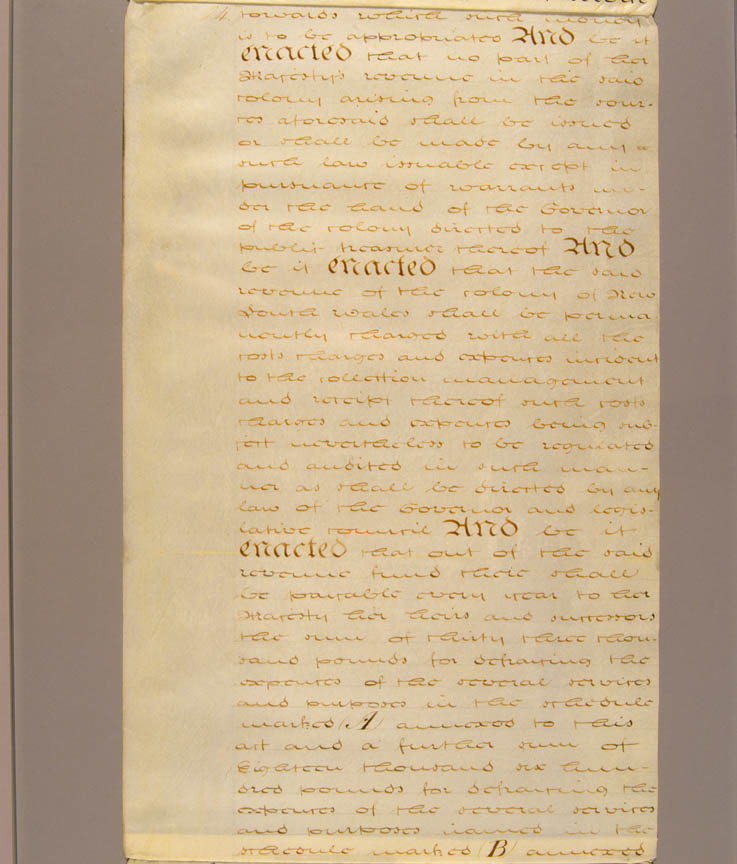 4 towards which such money
is to be appropriated And be it
enacted that no part of her
Majesty's revenue in the said
colony arising from the sour-
ces aforesaid shall be issued
or shall be made by any
such law issuable except in
pursuance of warrants un-
der the hand of the Governor
of the colony directed to the
public treasurer thereof And
be it enacted that the said
revenue of the colony of New
South Wales shall be perma
nently charged with all the
costs charges and expences incident
to the collection management
and receipt thereof such costs
charges and expences being sub-
ject nevertheless to be regulated
and audited in such man-
ner as shall be directed by any
law of the Governor and legis-
lative council And be it
enacted that out of the said
revenue fund there shall
be payable every year to her
Majesty her heirs and successors
the sum of thirty three thou-
sand pounds for defraying the
expences of the several services
and purposes in the schedule
marked (A) annexed to this
act and a further sum of
Eighteen thousand six hun-
dred pounds for defraying the
expences of the several services
and purposes named in the
schedule marked (B) annexed